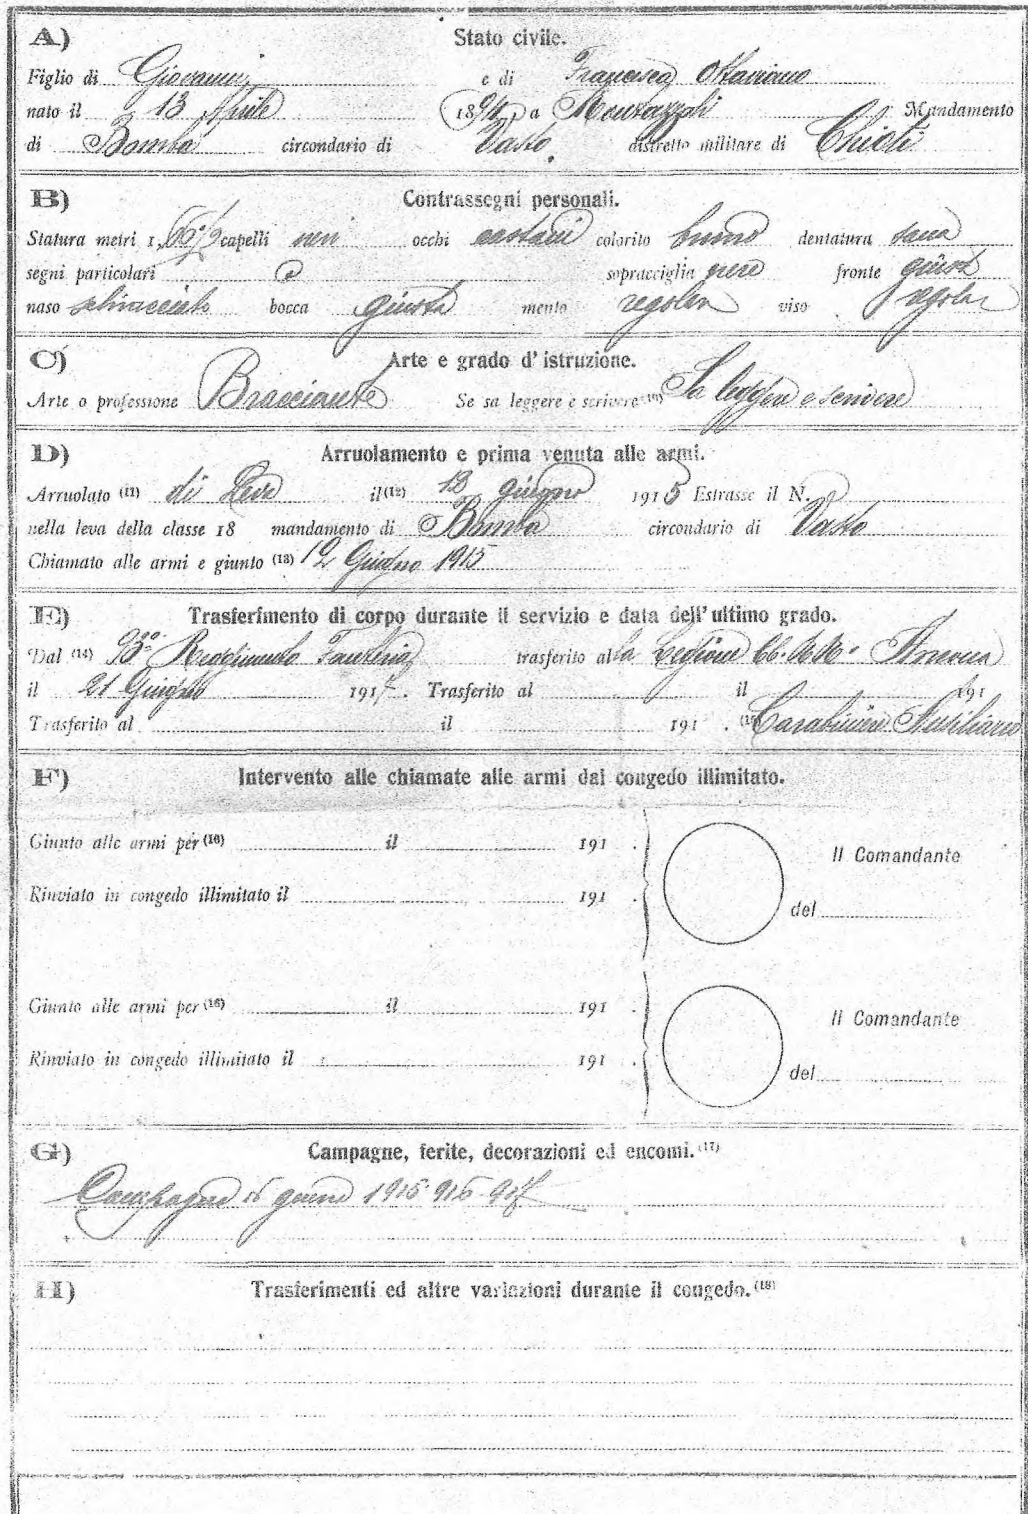 A) Stato civile.
Figlio di Giovanni e di Francesca Ottaviano
nato il 13 Aprile 1894, a Montazzoli Mandamento
di Bomba circondario di Vasto distretto militare di Chieti
B) Contrassegni personali.
Statura metri 1,66½ capelli neri occhi castani colorito bruno dentatura sana
segni particolari sopracciglia nere fronte giusta
naso schiacciato bocca giusta mento regolar viso regolar
C) Arte e grado d'istruzione.
Arte o professione Bracciante Se sa leggere e scrivere (10) Sa leggere e scrivere
D) Arruolamento e prima venuta alle armi.
Arruolato (11) di Leva il (12) 13 giugno 1915 Estrasse il N.
nella leva della classe 18 mandamento di Bomba circondario di Vasto
Chiamato alle armi e giunto (13) 12 Giugno 1915
E) Trasferimento di corpo durante il servizio e data dell'ultimo grado.
Dal (14) 93° Reggimento Fanteria trasferito alla Legione CC. RR. Ancona
il 21 Giugno 1917. Trasferito al il 191
Trasferito al il 191 . (15) Carabiniere Ausiliario
F) Intervento alle chiamate alle armi dal congedo illimitato.
Giunto alle armi per (16) il 191 .
Il Comandante
Rinviato in congedo illimitato il 191 .
del
Giunto alle armi per (16) il 191 .
Il Comandante
Rinviato in congedo illimitato il 191 .
del
G) Campagne, ferite, decorazioni ed encomi. (17)
Campagne di guerra 1915-916-917
H) Trasferimenti ed altre variazioni durante il congedo. (18)